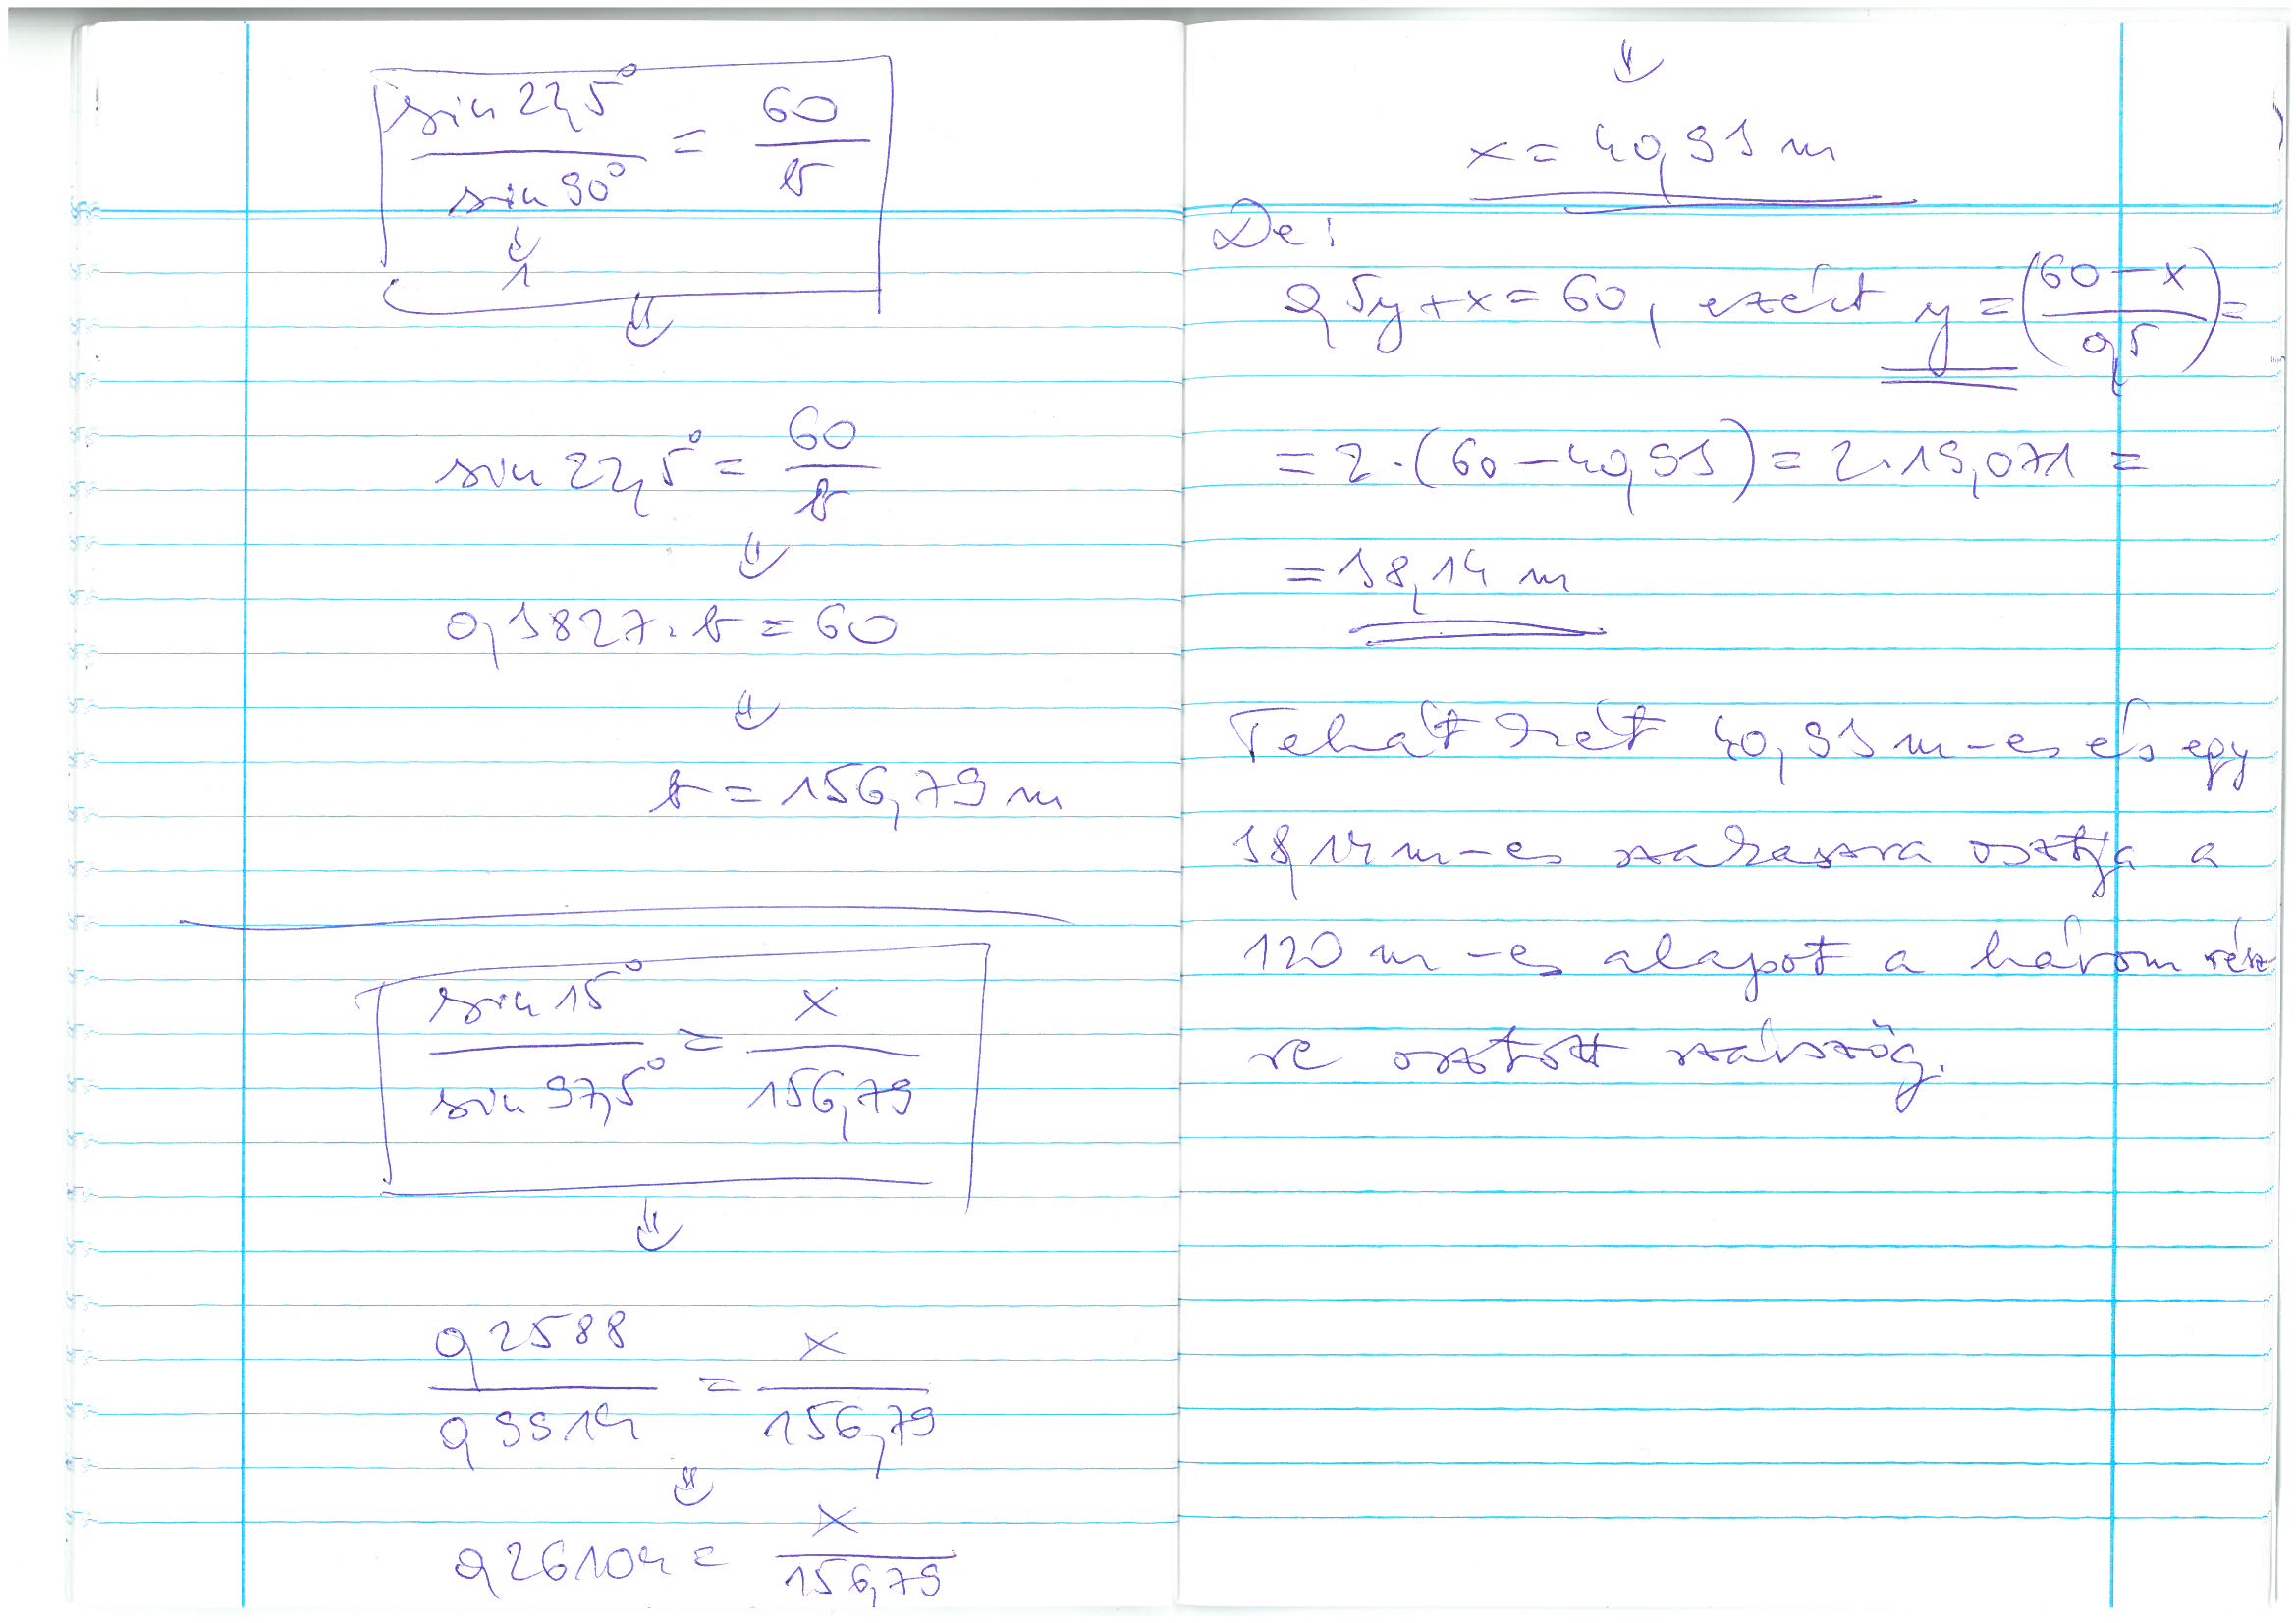 sin 22,5° / sin 90° = 60 / b
⇓
1
⇓
sin 22,5° = 60 / b
⇓
0,3827 · b = 60
⇓
b = 156,79 m
sin 15° / sin 97,5° = x / 156,79
⇓
0,2588 / 0,9914 = x / 156,79
⇓
0,26104 = x / 156,79
⇓
x = 40,93 m
De:
0,5y + x = 60, ezért y = (60 – x / 0,5) =
= 2 · (60 – 40,93) = 2 · 19,071 =
= 38,14 m
Tehát két 40,93 m-es és egy
38,14 m-es szakaszra osztja a
120 m-es alapot a három rész
re osztott szárszög.